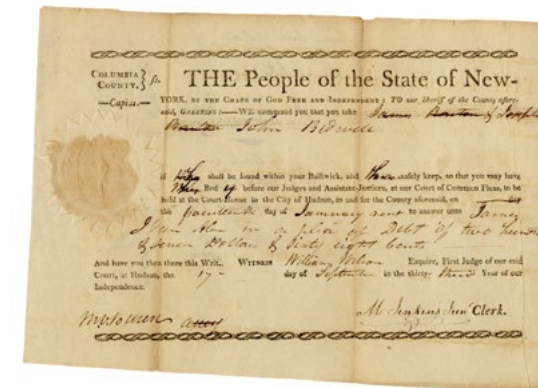 COLUMBIA COUNTY, } ss.
—Capias.—
THE People of the State of New-
YORK, BY THE GRACE OF GOD FREE AND INDEPENDENT; TO our Sheriff of the County afore-
said, GREETING:—WE command you that you take James &
John Bidwell
if shall be found within your Bailiwick, and safely keep, so that you may have
Bod before our Judges and Assistant-Justices, at our Court of Common Pleas, to be
held at the Court-House in the City of Hudson, in and for the County aforesaid, on
the day of January next to answer unto James
in a plea of Debt of two
& Seven Dollars & Sixty eight Cents
And have you then there this Writ. WITNESS William Wilson Esquire, First Judge of our said
Court, at Hudson, the 17 day of September in the thirty- third Year of our
Independence.
M Jenkins Jun Clerk.